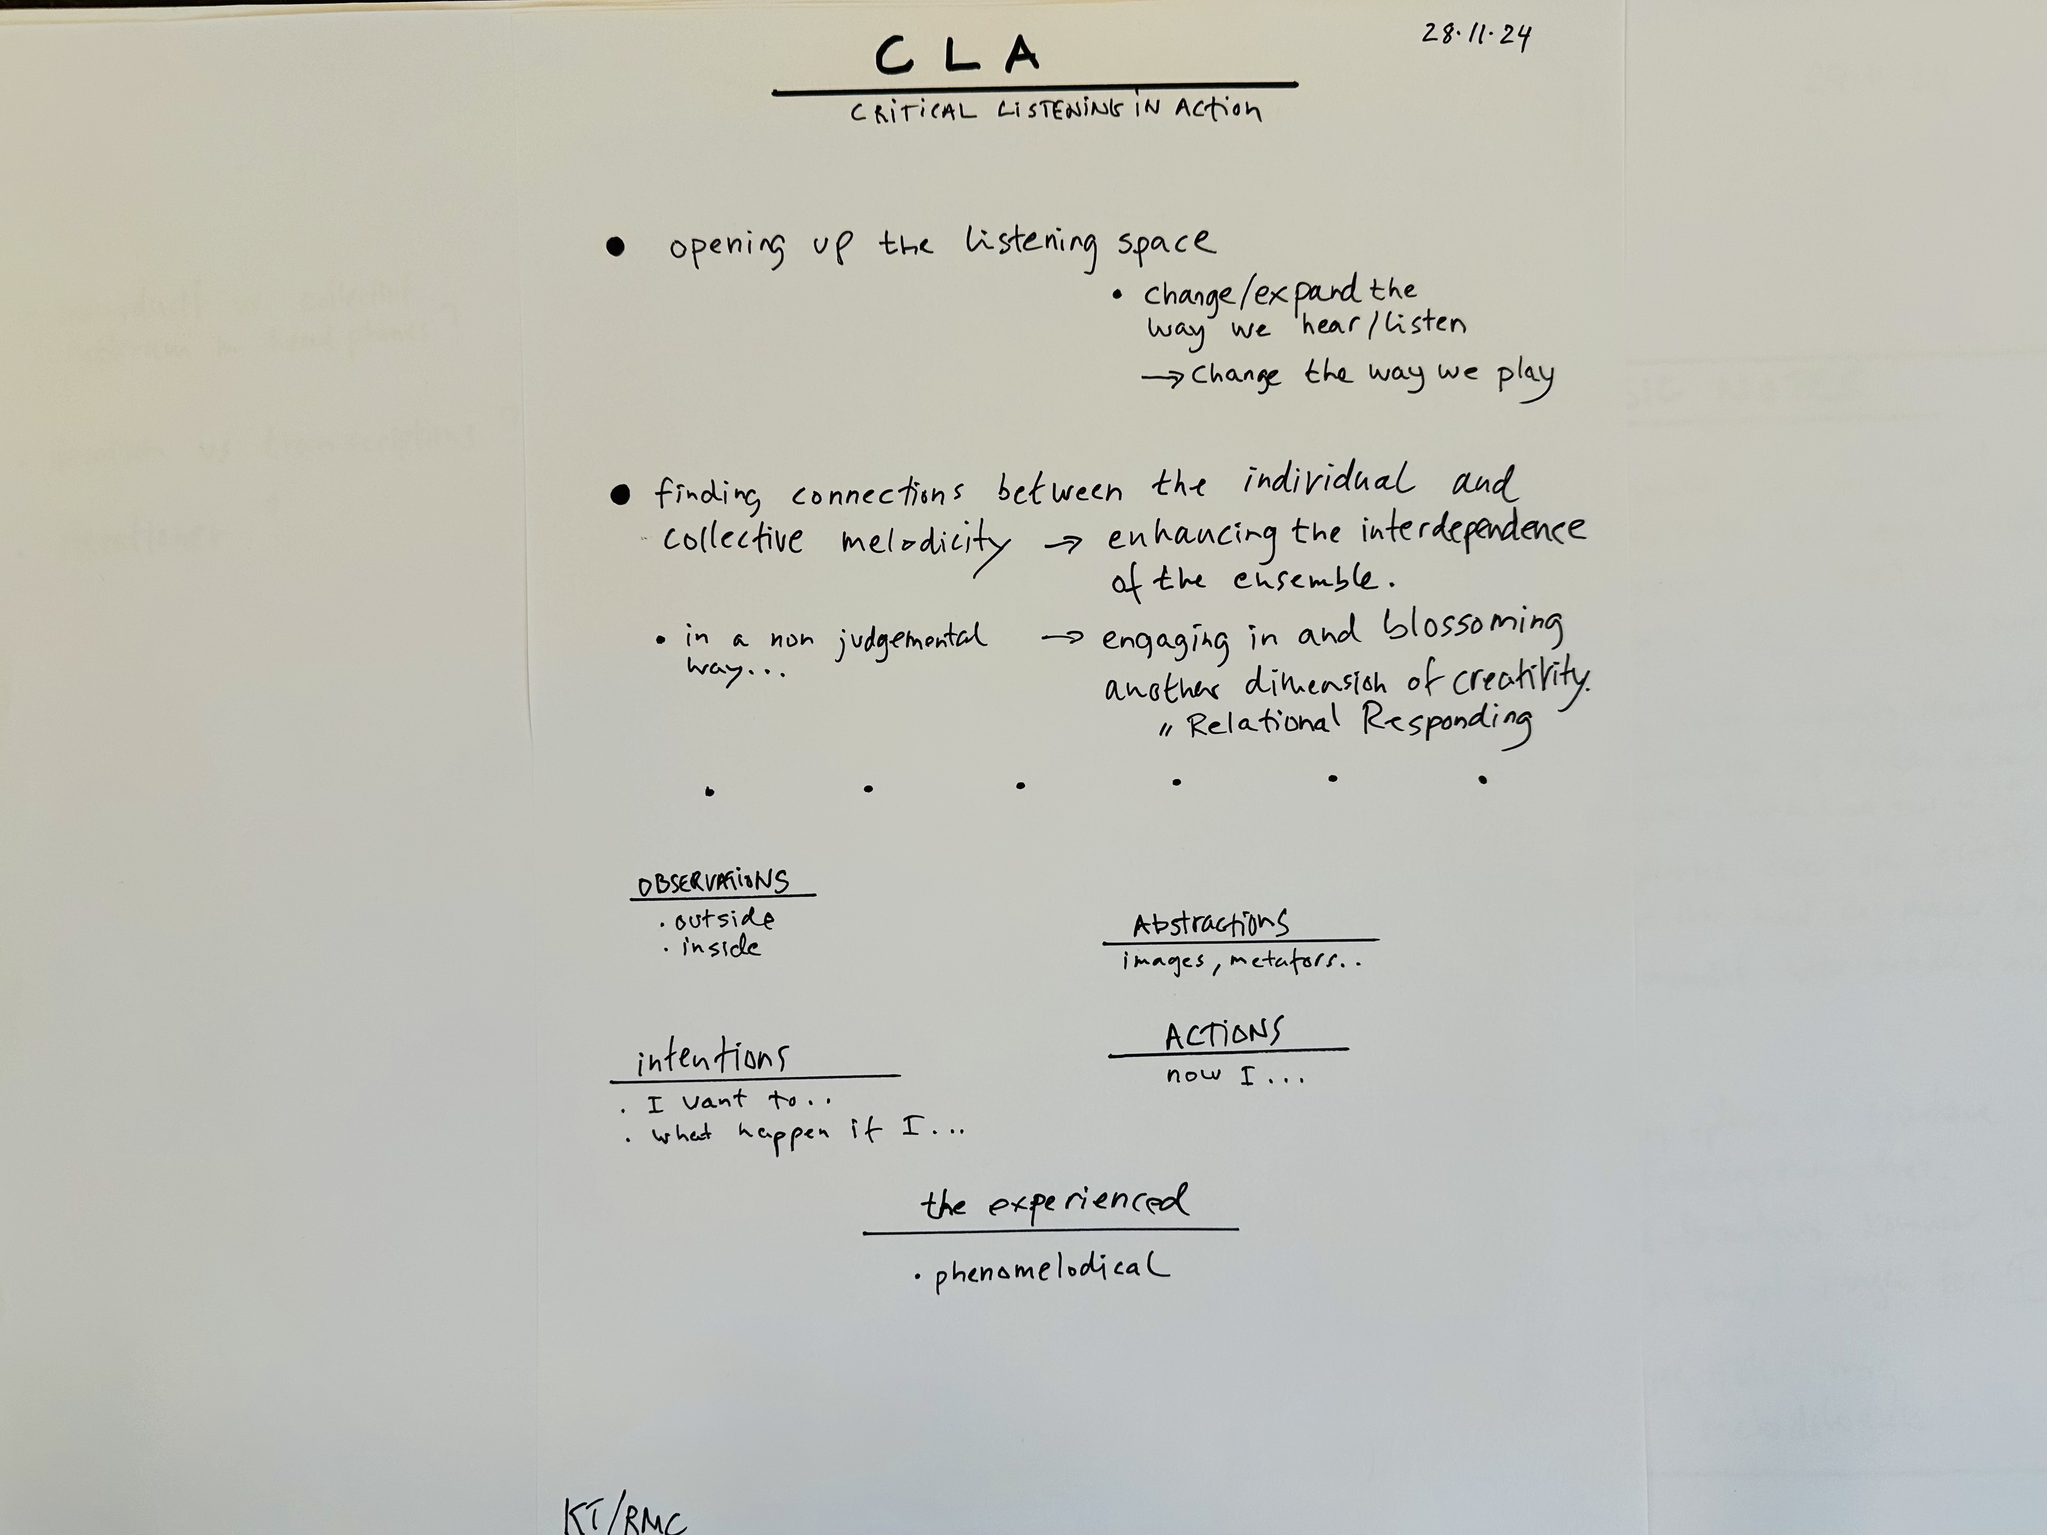 28.11.24
CLA
CRITICAL LISTENING IN ACTION
• opening up the listening space
• change/expand the
way we hear/listen
→ change the way we play
• finding connections between the individual and
collective melodicity → enhancing the interdependence
of the ensemble.
• in a non judgemental → engaging in and blossoming
way... another dimension of creativity.
" Relational Responding
OBSERVATIONS
. outside
. inside
Abstractions
images, metafors..
intentions
. I want to..
. what happen if I...
ACTIONS
now I...
the experienced
. phenomelodical
KT/RMC